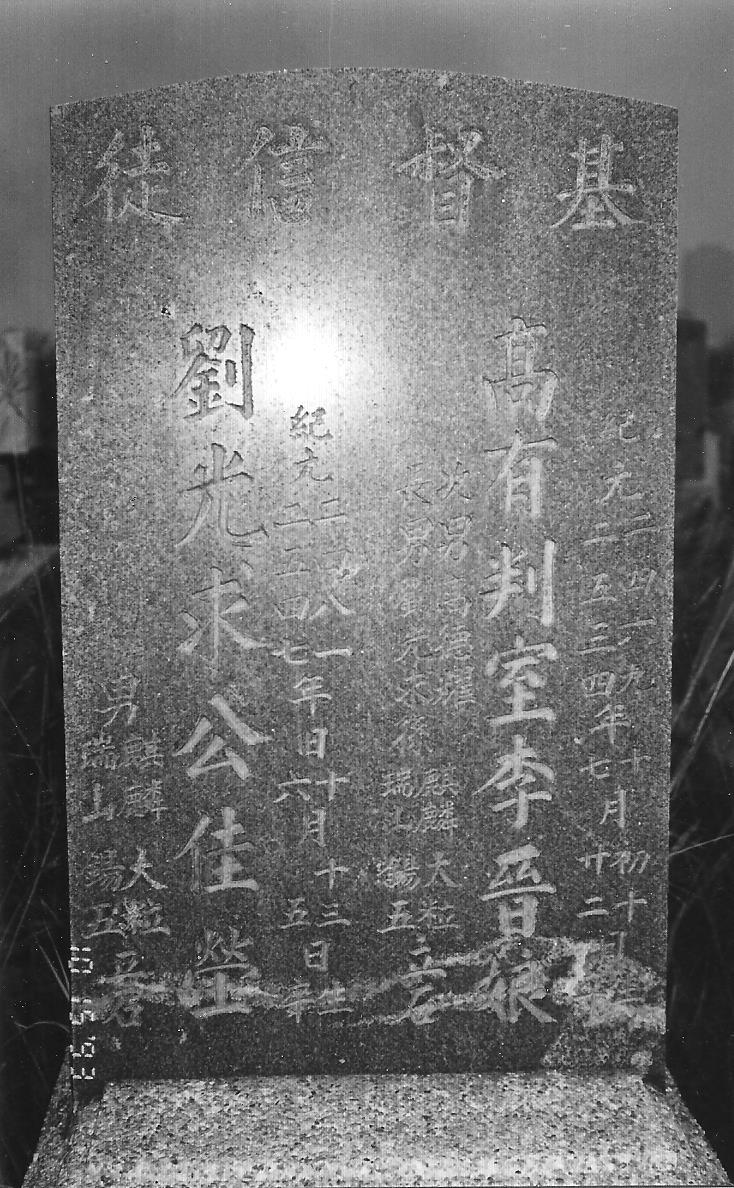 基督信徒
紀元二四一九年十月初十日生
二五三四年七月廿二日卒
高有判室李晉娘
次男高德 麒麟 大粒
長男劉元未 孫 瑞山 錫五 立石
紀元二四八一年十月十三日生
二五四七年六月五日卒
劉光求公佳塋
男 麒麟 大粒
瑞山 錫五 立石
10 15 '93